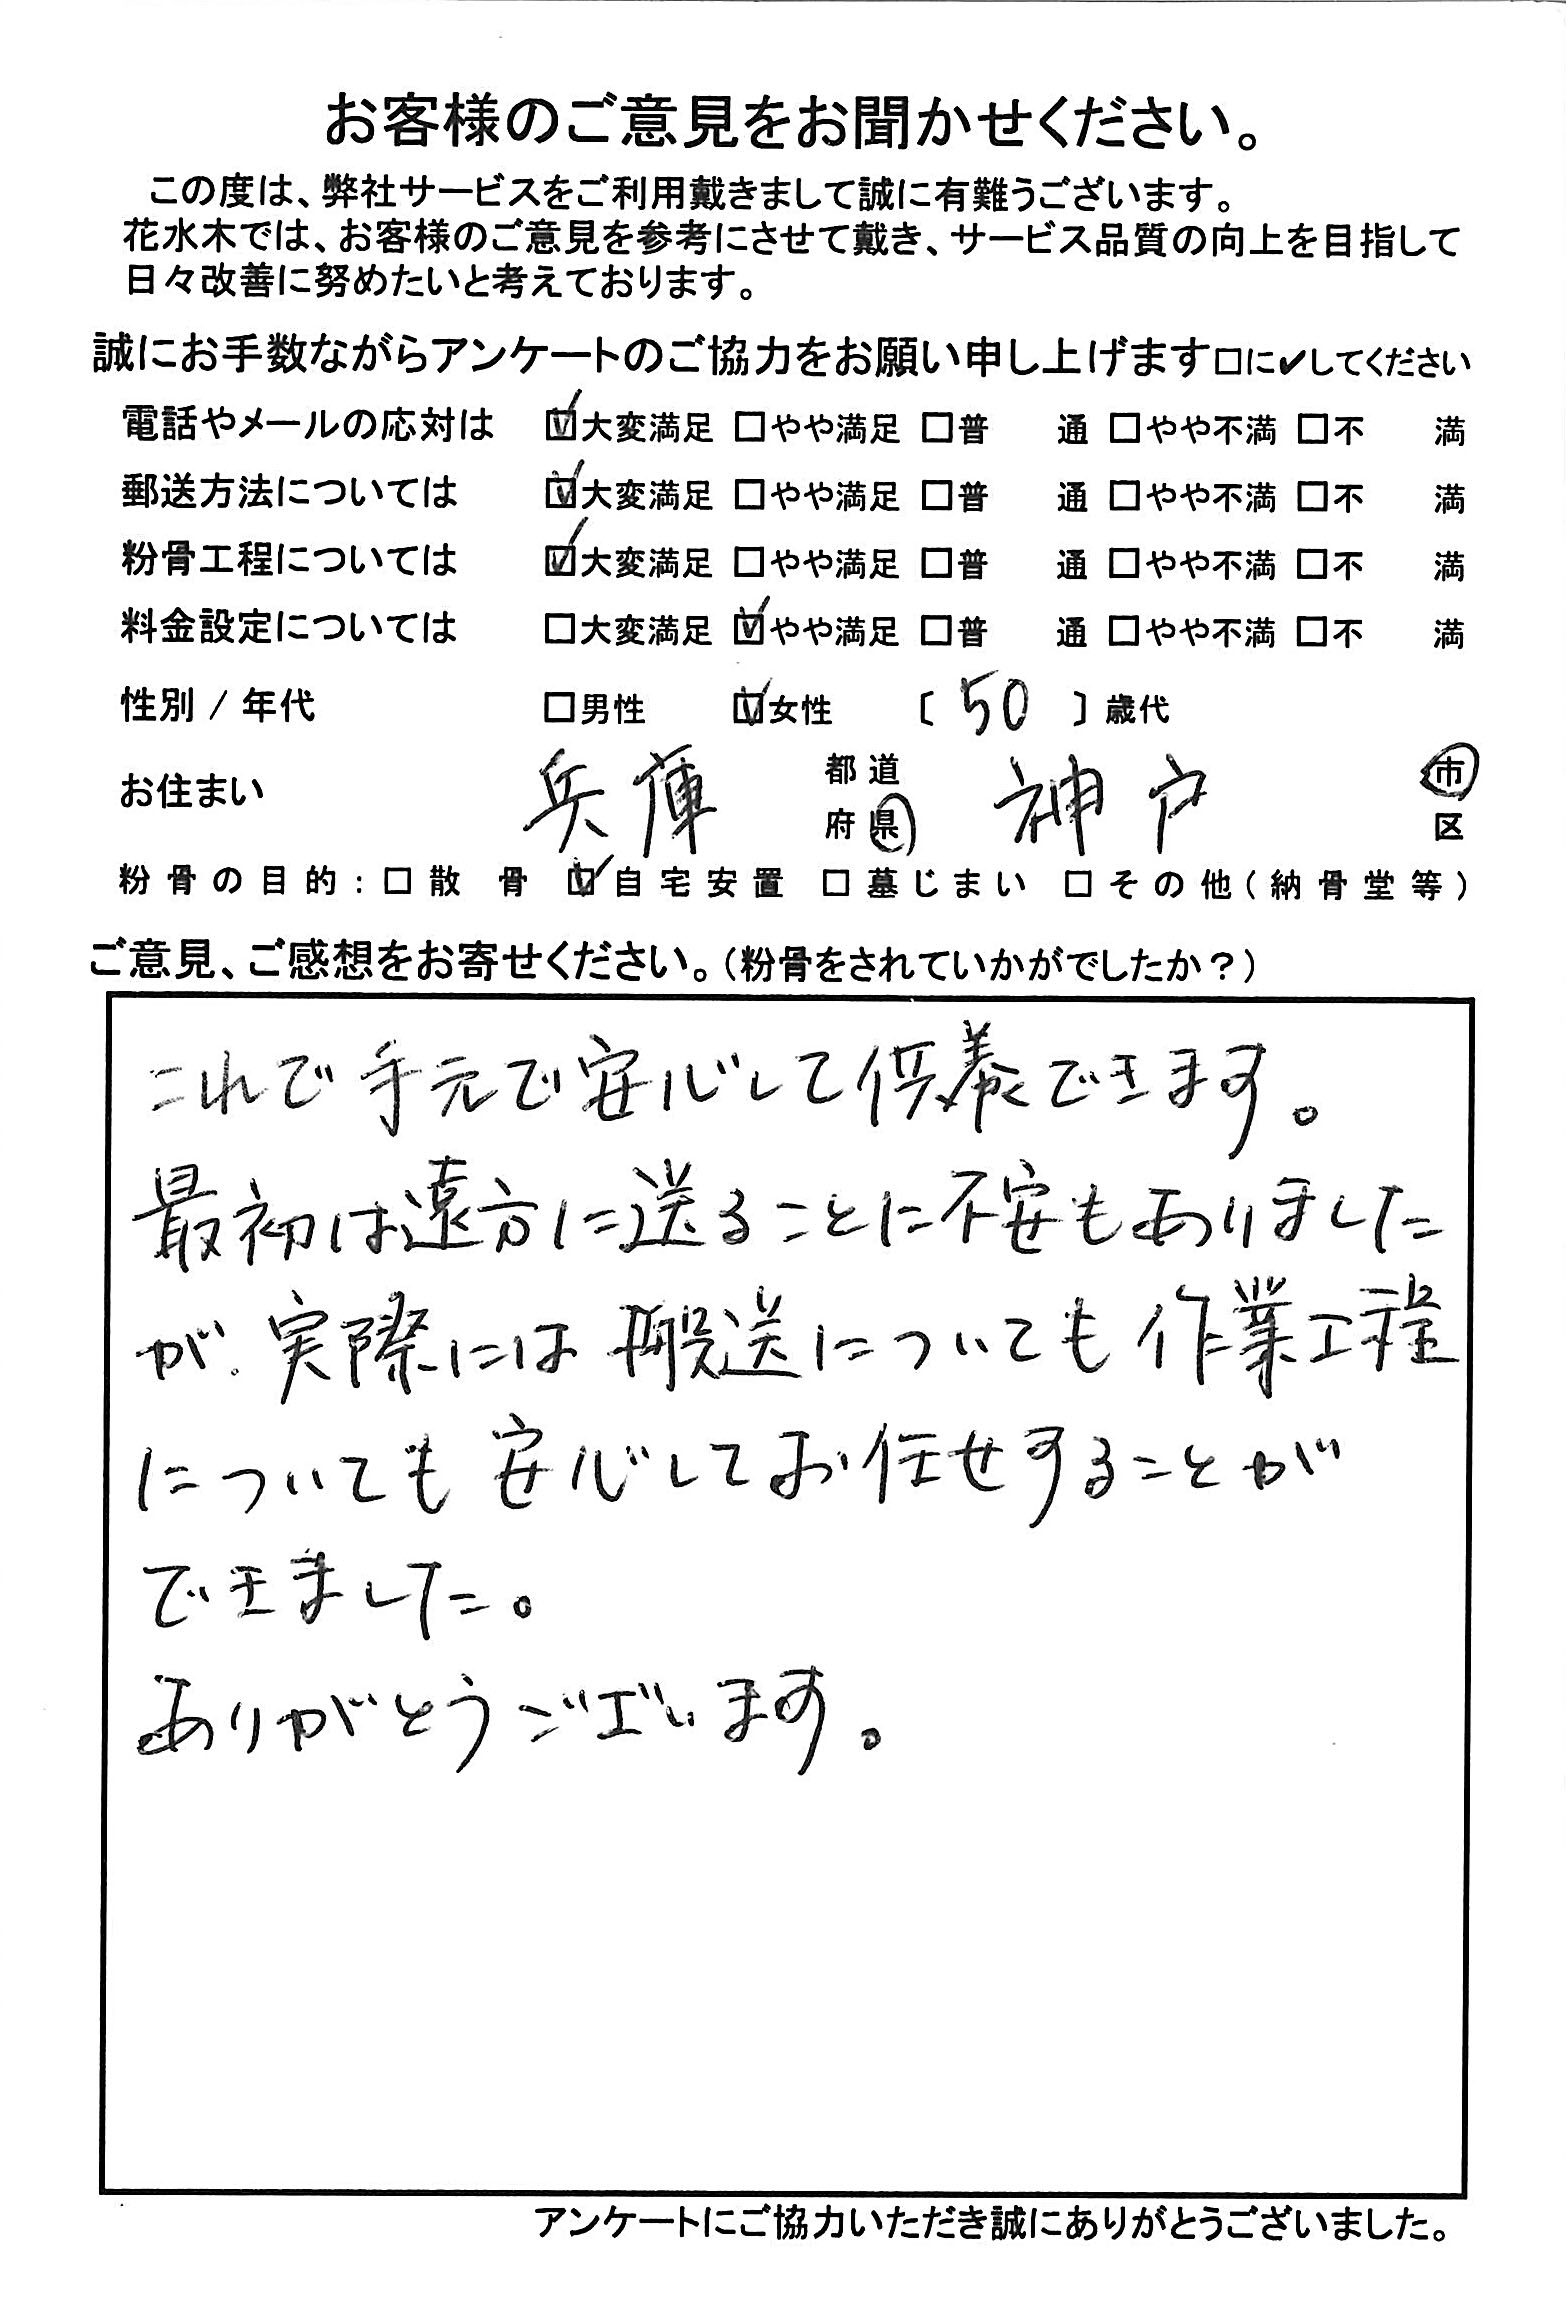 お客様のご意見をお聞かせください。
この度は、弊社サービスをご利用戴きまして誠に有難うございます。
花水木では、お客様のご意見を参考にさせて戴き、サービス品質の向上を目指して
日々改善に努めたいと考えております。
誠にお手数ながらアンケートのご協力をお願い申し上げます□に✔してください
電話やメールの応対は ☑大変満足 □やや満足 □普 通 □やや不満 □不 満
郵送方法については ☑大変満足 □やや満足 □普 通 □やや不満 □不 満
粉骨工程については ☑大変満足 □やや満足 □普 通 □やや不満 □不 満
料金設定については □大変満足 ☑やや満足 □普 通 □やや不満 □不 満
性別 / 年代 □男性 ☑女性 〔 50 〕歳代
お住まい 兵庫 都道府県 神戸 市区
粉骨の目的:□散 骨 ☑自宅安置 □墓じまい □その他(納骨堂等)
ご意見、ご感想をお寄せください。(粉骨をされていかがでしたか?)
これで手元で安心して供養できます。
最初は遠方に送ることに不安もありました
が、実際には搬送についても作業工程
についても安心してお任せすることが
できました。
ありがとうございます。
アンケートにご協力いただき誠にありがとうございました。